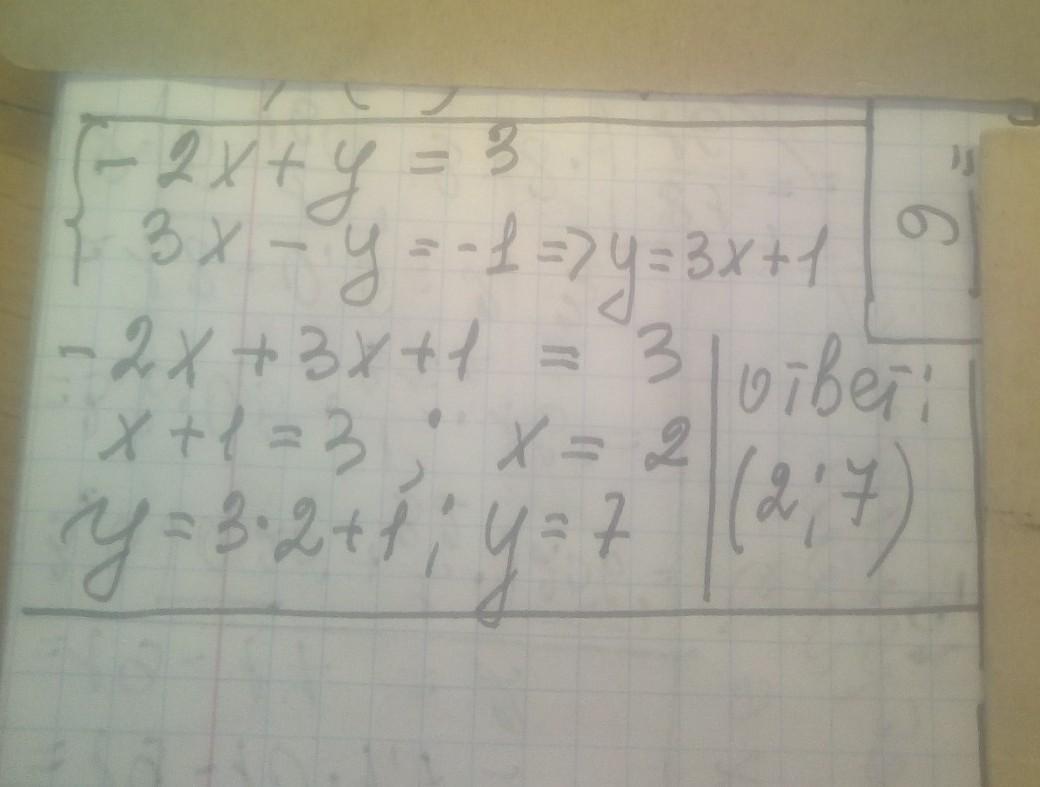 - 2x + y = 3
3x - y = -1 => y = 3x + 1
- 2x + 3x + 1 = 3
x + 1 = 3 ; x = 2
y = 3·2 + 1 ; y = 7
ответ:
(2; 7)